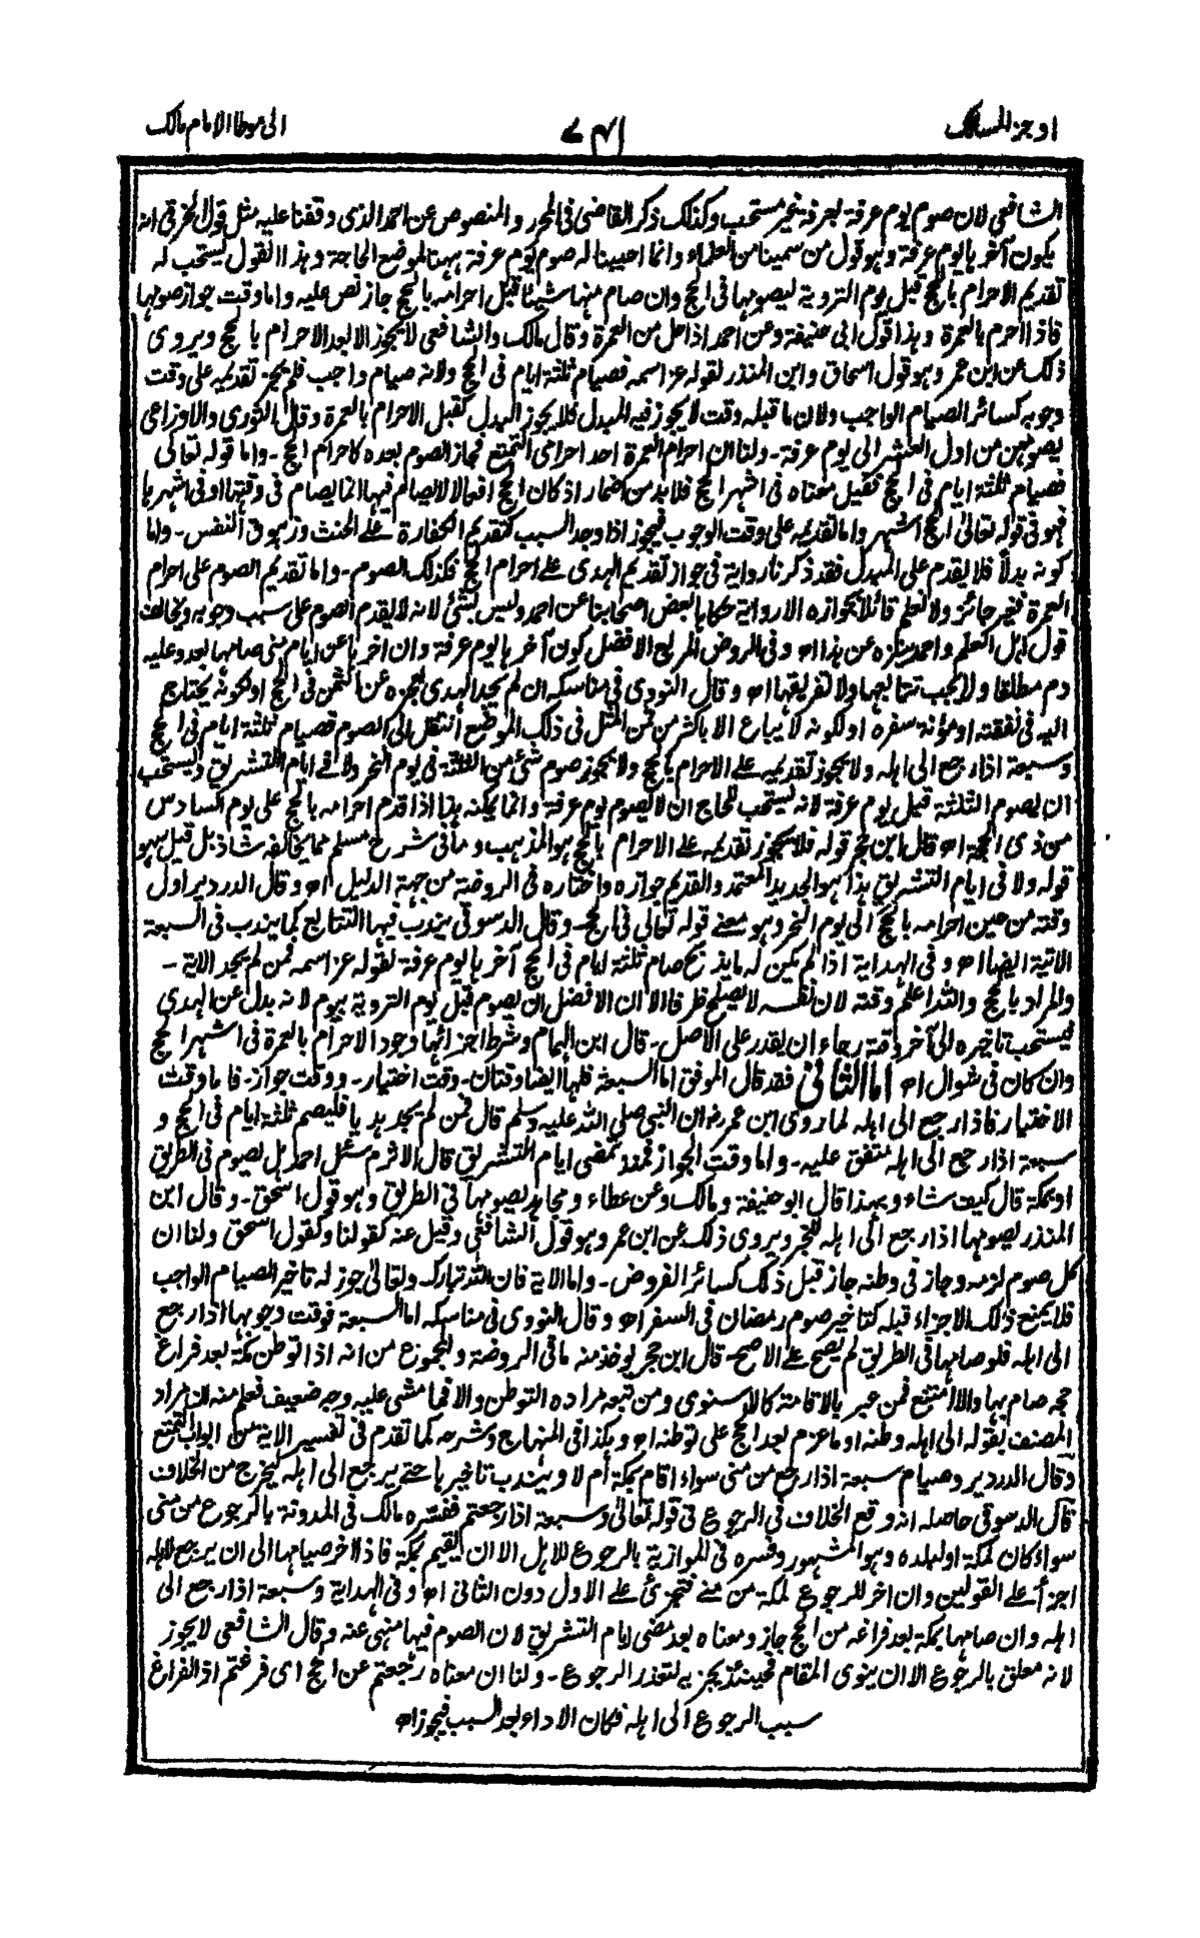 اوجز المسالك ٧٤١ الى موطا الامام مالك
الشافعي لان صوم يوم عرفة بعرفة غير مستحب وكذلك ذكر القاضي في المحرر والمنصوص عن احمد الذى وقفنا عليه مثل قول الخرقي انه
يكون آخرها يوم عرفة وهو قول من سمينا من العلماء وانما احببنا له صوم يوم عرفة ههنا لموضع الحاجة وهذا القول يستحب له
تقديم الاحرام بالحج قبل يوم التروية ليصومها في الحج وان صام منها شيئا قبل احرامه بالحج جاز نص عليه واما وقت جواز صومها
فاذا احرم بالعمرة وهذا قول ابى حنيفة وعن احمد اذا حل من العمرة وقال مالك والشافعي لا يجوز الا بعد الاحرام بالحج ويروى
ذلك عن ابن عمر وهو قول اسحاق وابن المنذر لقوله عز اسمه فصيام ثلثة ايام في الحج ولانه صيام واجب فلم يجز تقديمه على وقت
وجوبه كسائر الصيام الواجب ولان ما قبله وقت لا يجوز فيه المبدل فلا يجوز البدل كقبل الاحرام بالعمرة وقال الثورى والاوزاعى
يصومهن من اول العشر الى يوم عرفة - ولنا ان احرام العمرة احد احرامى التمتع فجاز الصوم بعده كاحرام الحج - واما قوله تعالى
فصيام ثلثة ايام في الحج فقيل معناه في اشهر الحج فلا بد من اضمار اذ كان الحج افعالا لا يصام فيها انما يصام في وقتها او في اشهرها
فهو في قوله تعالى الحج اشهر واما تقديمه على وقت الوجوب فيجوز اذا وجد السبب كتقديم الكفارة على الحنث وزهوق النفس - واما
كونه بدلا فلا يقدم على المبدل فقد ذكرنا رواية في جواز تقديم الهدى على احرام الحج فكذلك الصوم - واما تقديم الصوم على احرام
العمرة فغير جائز ولا نعلم قائلا بجوازه الا رواية حكاها بعض اصحابنا عن احمد وليس بشئ لانه لا يقدم الصوم على سبب وجوبه ويخالف
قول اهل العلم واحمد ينزه عن هذا اه وفى الروض المربع الافضل كون آخرها يوم عرفة وان اخرها عن ايام منى صامها بعد وعليه
دم مطلقا ولا يجب تتابعها ولا تفريقها اه وقال النووى في مناسكه ان لم يجد الهدى لعجزه عن الثمن في الحج او لكونه يحتاج
اليه في نفقته او مؤنة سفره او لكونه لا يباع الا باكثر من ثمن المثل في ذلك الموضع انتقل الى الصوم فصيام ثلثة ايام في الحج
وسبعة اذا رجع الى اهله ولا يجوز تقديمه على الاحرام بالحج ولا يجوز صوم شئ من الثلثة في يوم النحر ولا في ايام التشريق ويستحب
ان يصوم الثلثة قبل يوم عرفة لانه يستحب للحاج ان لا يصوم يوم عرفة وانما يمكنه هذا اذا قدم احرامه بالحج على يوم السادس
من ذى الحجة اه قال ابن حجر قوله فلا يجوز تقديمه على الاحرام بالحج هو المذهب وما في شرح مسلم مما يخالفه شاذ بل قيل سهو
قوله ولا في ايام التشريق هذا هو الجديد المعتمد والقديم جوازه واختاره في الروضة من جهة الدليل اه وقال الدردير اول
وقته من حين احرامه بالحج الى يوم النحر وهو معنى قوله تعالى في الحج - وقال الدسوقى يندب فيها التتابع كما يندب في السبعة
الاتية ايضا اه وفى الهداية اذا لم يكن له ما يذبح صام ثلثة ايام في الحج آخرها يوم عرفة لقوله عز اسمه فمن لم يجد الاية -
والمراد بالحج والله اعلم وقته لان نفسه لا يصلح ظرفا الا ان الافضل ان يصوم قبل يوم التروية بيوم لانه بدل عن الهدى
فيستحب تاخيره الى آخر وقته رجاء ان يقدر على الاصل - قال ابن الهمام وشرط اجزائها وجود الاحرام بالعمرة في اشهر الحج
وان كان في شوال اه اما الثانى فقد قال الموفق اما السبعة فلها ايضا وقتان - وقت اختيار - ووقت جواز - فاما وقت
الاختيار فاذا رجع الى اهله لما روى ابن عمر رضـ ان النبى صلى الله عليه وسلم قال فمن لم يجد هديا فليصم ثلثة ايام في الحج و
سبعة اذا رجع الى اهله متفق عليه - واما وقت الجواز فمنذ تمضى ايام التشريق قال الاثرم سئل احمد هل يصوم في الطريق
او بمكة قال كيف شاء وبهذا قال ابو حنيفة ومالك وعن عطاء ومجاهد يصومها في الطريق وهو قول اسحق - وقال ابن
المنذر يصومها اذا رجع الى اهله للخبر ويروى ذلك عن ابن عمر وهو قول الشافعى وقيل عنه كقولنا وكقول اسحق ولنا ان
كل صوم لزمه وجاز في وطنه جاز قبل ذلك كسائر الفروض - واما الاية فان الله تبارك وتعالى جوز له تاخير الصيام الواجب
فلا يمنع ذلك الاجزاء قبله كتاخير صوم رمضان في السفر اه وقال النووى في مناسكه اما السبعة فوقت وجوبها اذا رجع
الى اهله فلو صامها في الطريق لم يصح على الاصح - قال ابن حجر يوخذ منه ما في الروضة والمجموع من انه اذا توطن مكة بعد فراغ
حجه صام بها والا امتنع فمن عبر بالاقامة كالاسنوى ومن تبعه مراده التوطن والا فما مشى عليه وجه ضعيف فعلم منه ان مراد
المصنف بقوله الى اهله وطنه او ما عزم بعد الحج على توطنه اه وهكذا في المنهاج وشرحه كما تقدم في تفسير الاية من ابواب التمتع
وقال الدردير وصيام سبعة اذا رجع من منى سواء اقام بمكة ام لا ويندب تاخيرها حتى يرجع الى اهله ليخرج من الخلاف
قال الدسوقى حاصله انه وقع الخلاف في الرجوع في قوله تعالى وسبعة اذا رجعتم ففسره مالك في المدونة بالرجوع من منى
سواء كان لمكة او لبلده وهو المشهور وفسره في الموازية بالرجوع للاهل الا ان يقيم بمكة فاذا اخر صيامها الى ان يرجع لاهله
اجزأ على القولين وان اخر للرجوع لمكة من منى فتجزئ على الاول دون الثانى اه وفى الهداية وسبعة اذا رجع الى
اهله وان صامها بمكة بعد فراغه من الحج جاز ومعناه بعد مضى ايام التشريق لان الصوم فيها منهى عنه وقال الشافعى لا يجوز
لانه معلق بالرجوع الا ان ينوى المقام فحينئذ يجزيه لتعذر الرجوع - ولنا ان معناه رجعتم عن الحج اى فرغتم اذ الفراغ
سبب الرجوع الى اهله فكان الاداء بعد السبب فيجوز اه